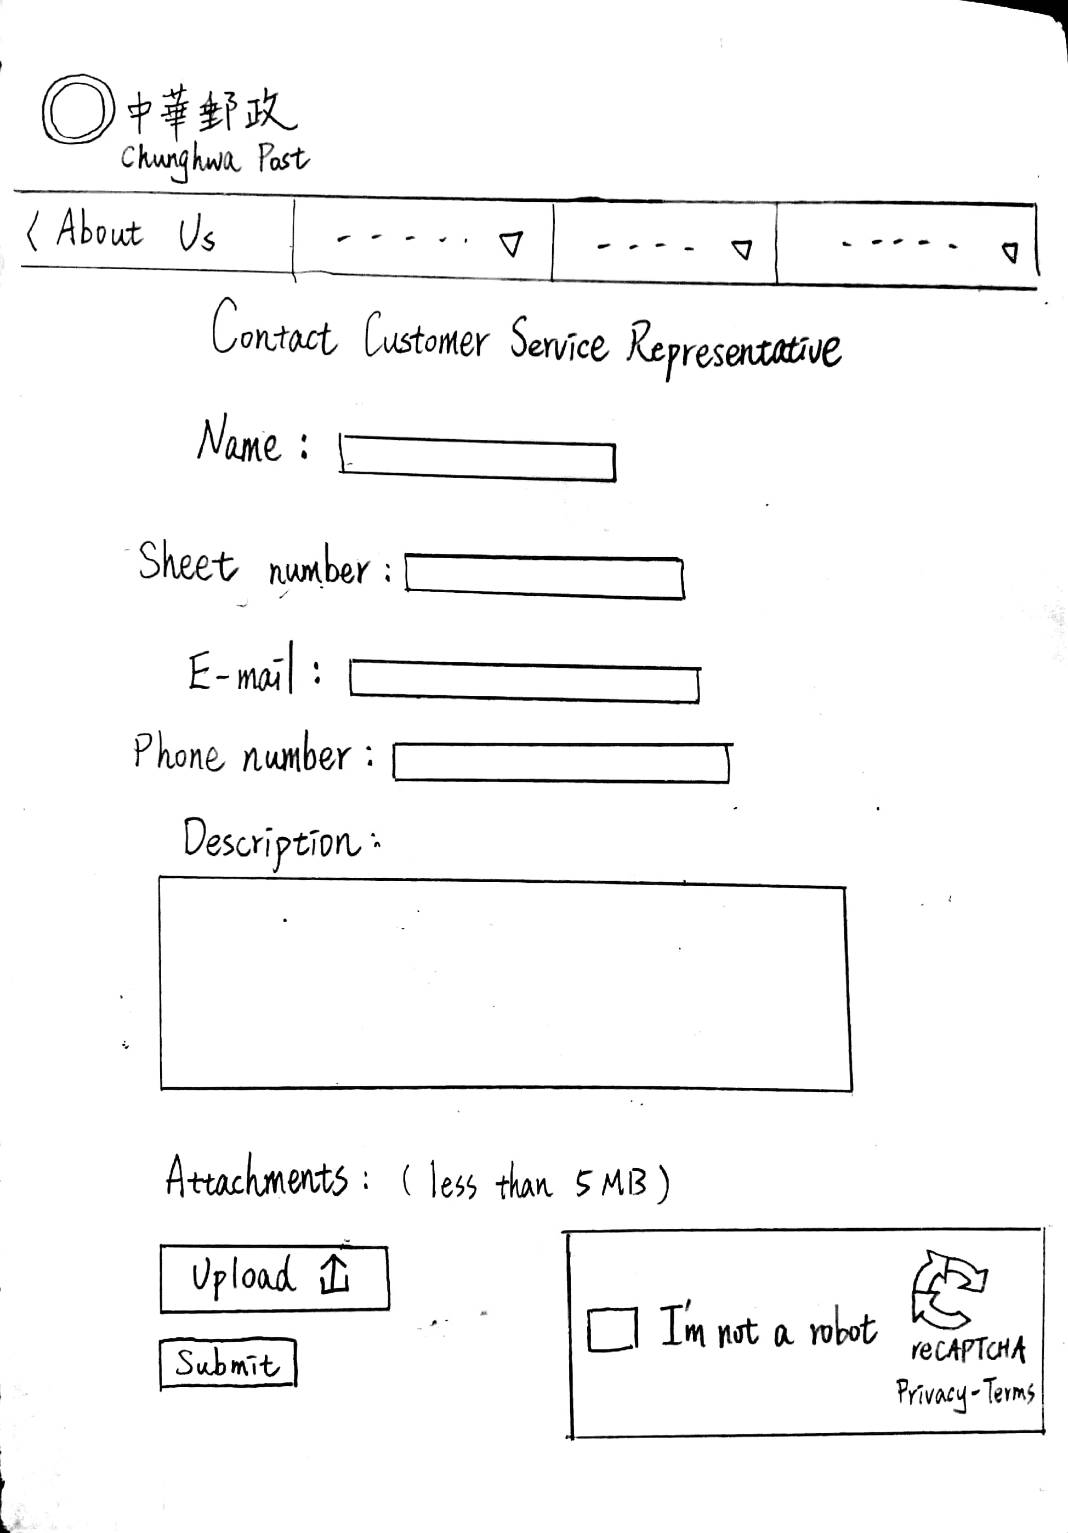 中華郵政
Chunghwa Post
< About Us
Contact Customer Service Representative
Name :
Sheet number :
E-mail :
Phone number :
Description :
Attachments : (less than 5MB)
Upload
Submit
I'm not a robot
reCAPTCHA
Privacy - Terms